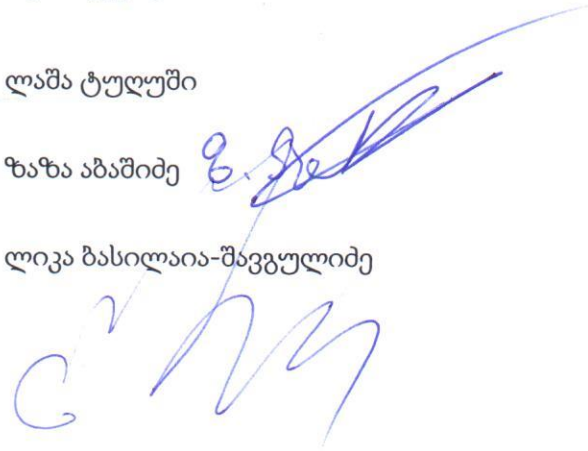 ლაშა ტუღუში
ზაზა აბაშიძე
ლიკა ბასილაია-შავგულიძე